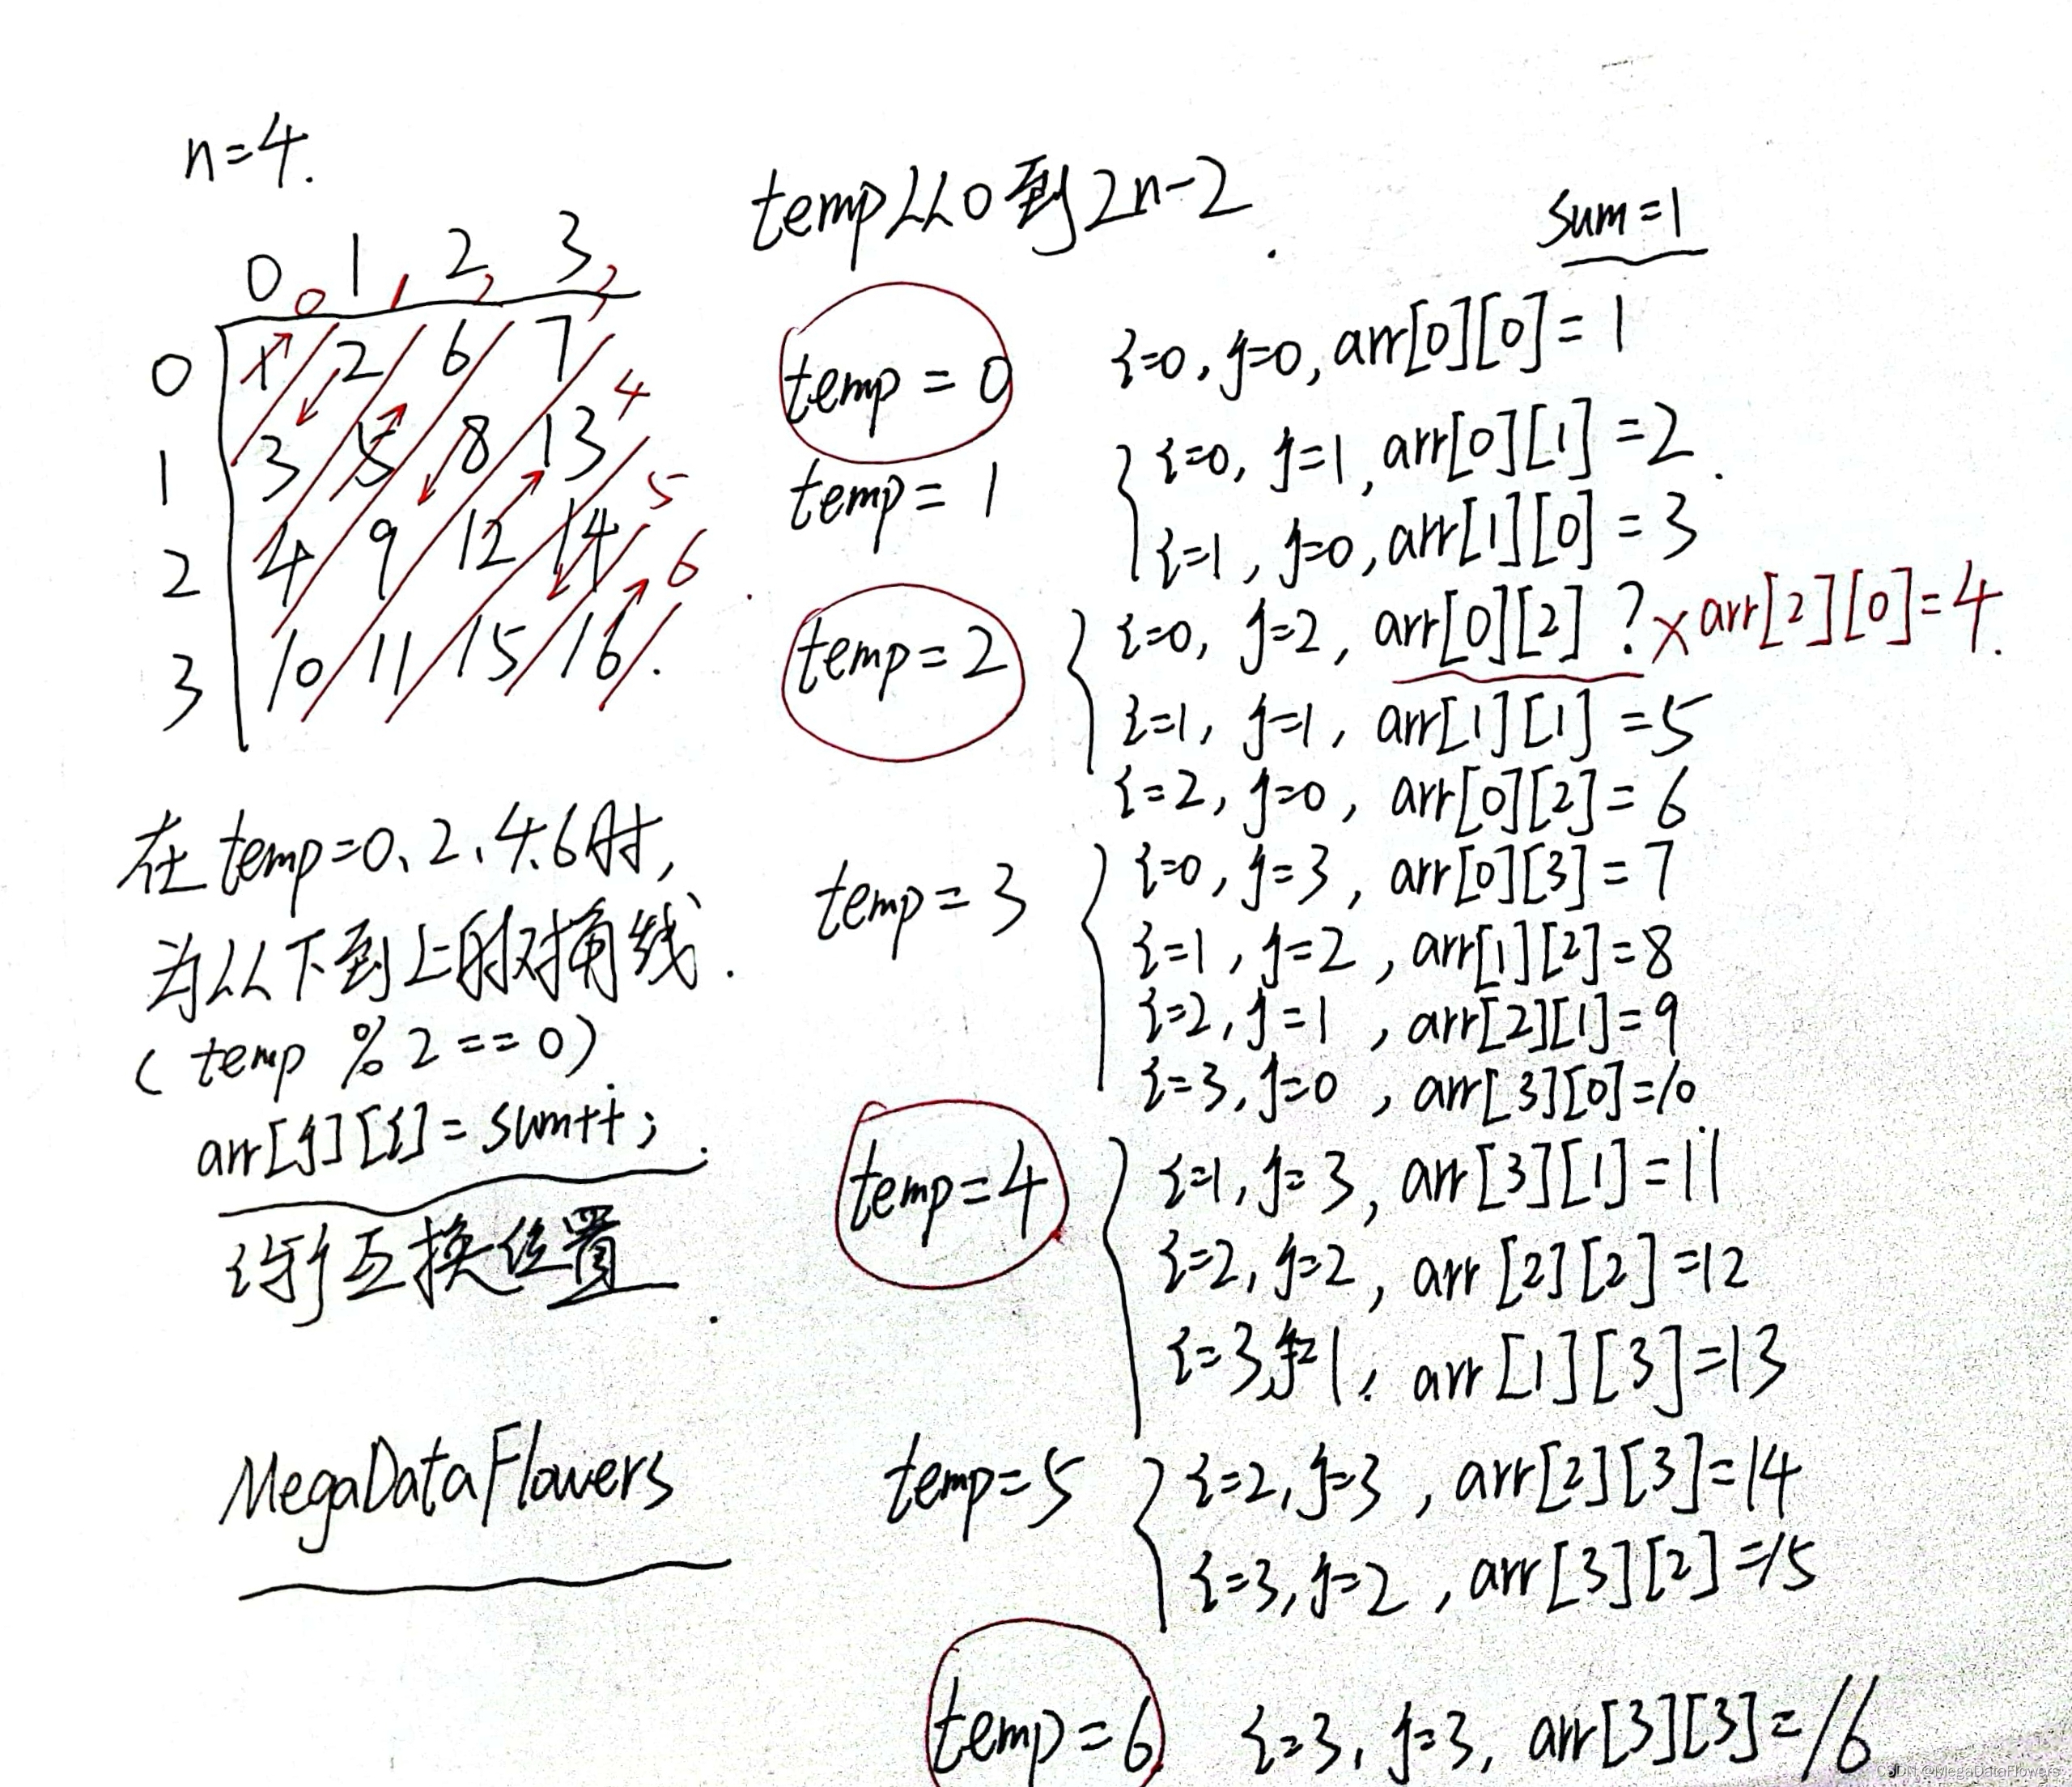 n=4.
temp从0到2n-2.
sum=1
0 1 2 3
0 1 2 3
0 1 2 6 7
4
1 3 5 8 13
5
2 4 9 12 14
6
3 10 11 15 16.
在temp=0、2、4、6时,
为从下到上的对角线.
(temp % 2 == 0).
arr[j][i] = sum++;.
i与j互换位置.
MegaDataFlowers
temp = 0 i=0, j=0, arr[0][0] = 1
temp = 1 i=0, j=1, arr[0][1] = 2.
i=1, j=0, arr[1][0] = 3
temp = 2 i=0, j=2, arr[0][2] ? × arr[2][0] = 4.
i=1, j=1, arr[1][1] = 5
i=2, j=0, arr[0][2] = 6
temp = 3 i=0, j=3, arr[0][3] = 7
i=1, j=2, arr[1][2] = 8
i=2, j=1, arr[2][1] = 9
i=3, j=0, arr[3][0] = 10
temp = 4 i=1, j=3, arr[3][1] = 11
i=2, j=2, arr[2][2] = 12
i=3, j=1, arr[1][3] = 13
temp = 5 i=2, j=3, arr[2][3] = 14
i=3, j=2, arr[3][2] = 15
temp = 6 i=3, j=3, arr[3][3] = 16
CSDN @MegaDataFlowers